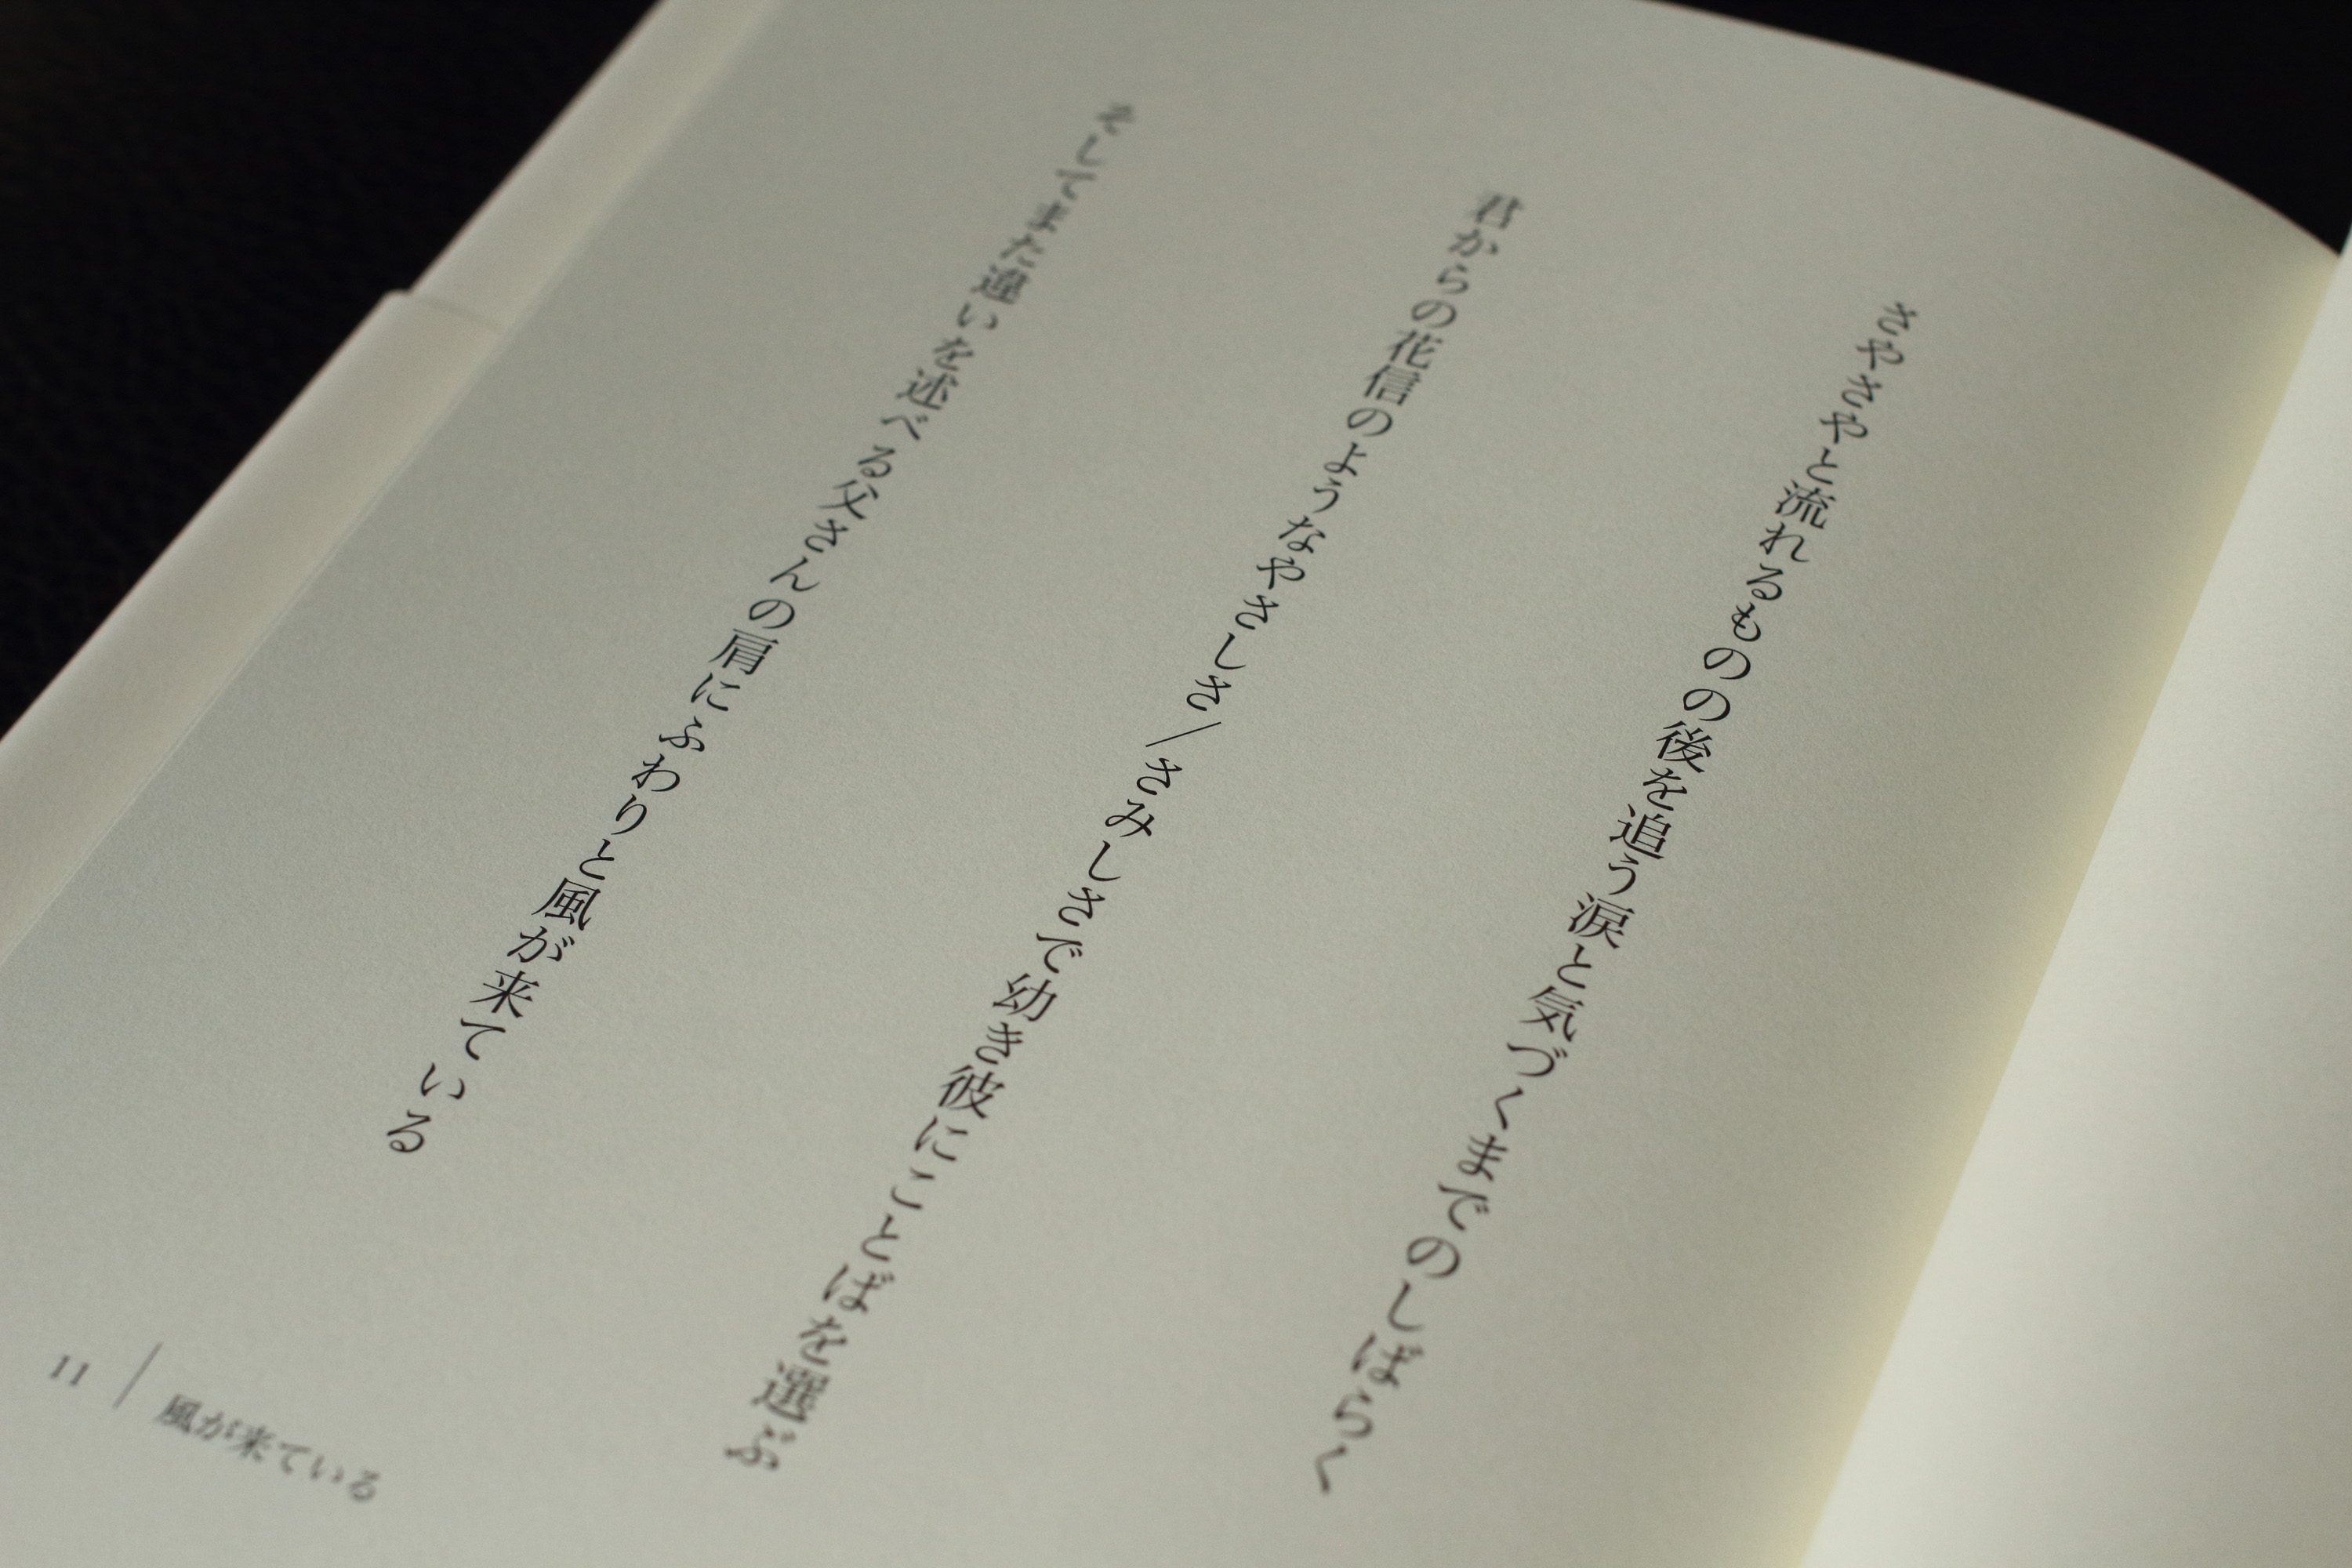 さやさやと流れるものの後を追う涙と気づくまでのしばらく
君からの花信のようなやさしさ/さみしさで幼き彼にことばを選ぶ
そしてまた違いを述べる父さんの肩にふわりと風が来ている
11 | 風が来ている